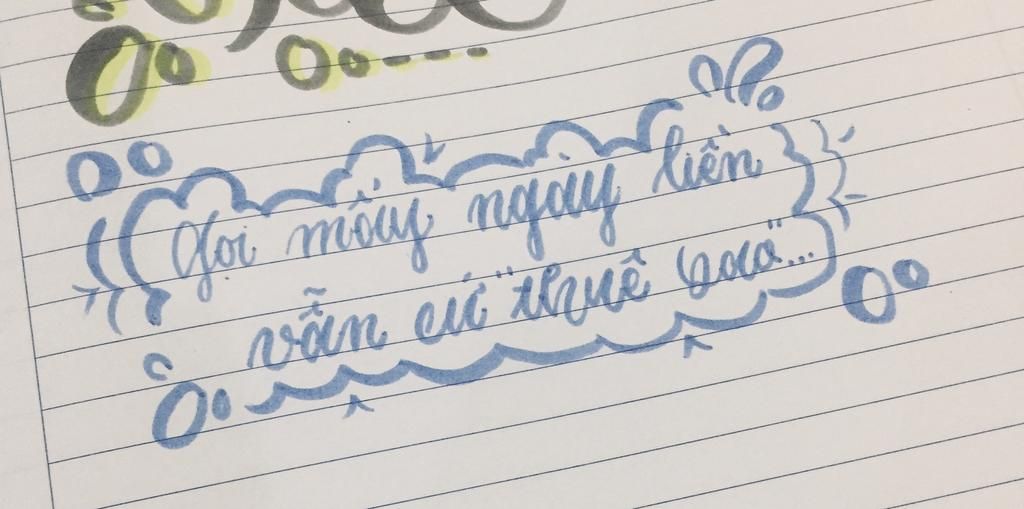 Gọi mấy ngày liền
vẫn cứ "thuê bao"...